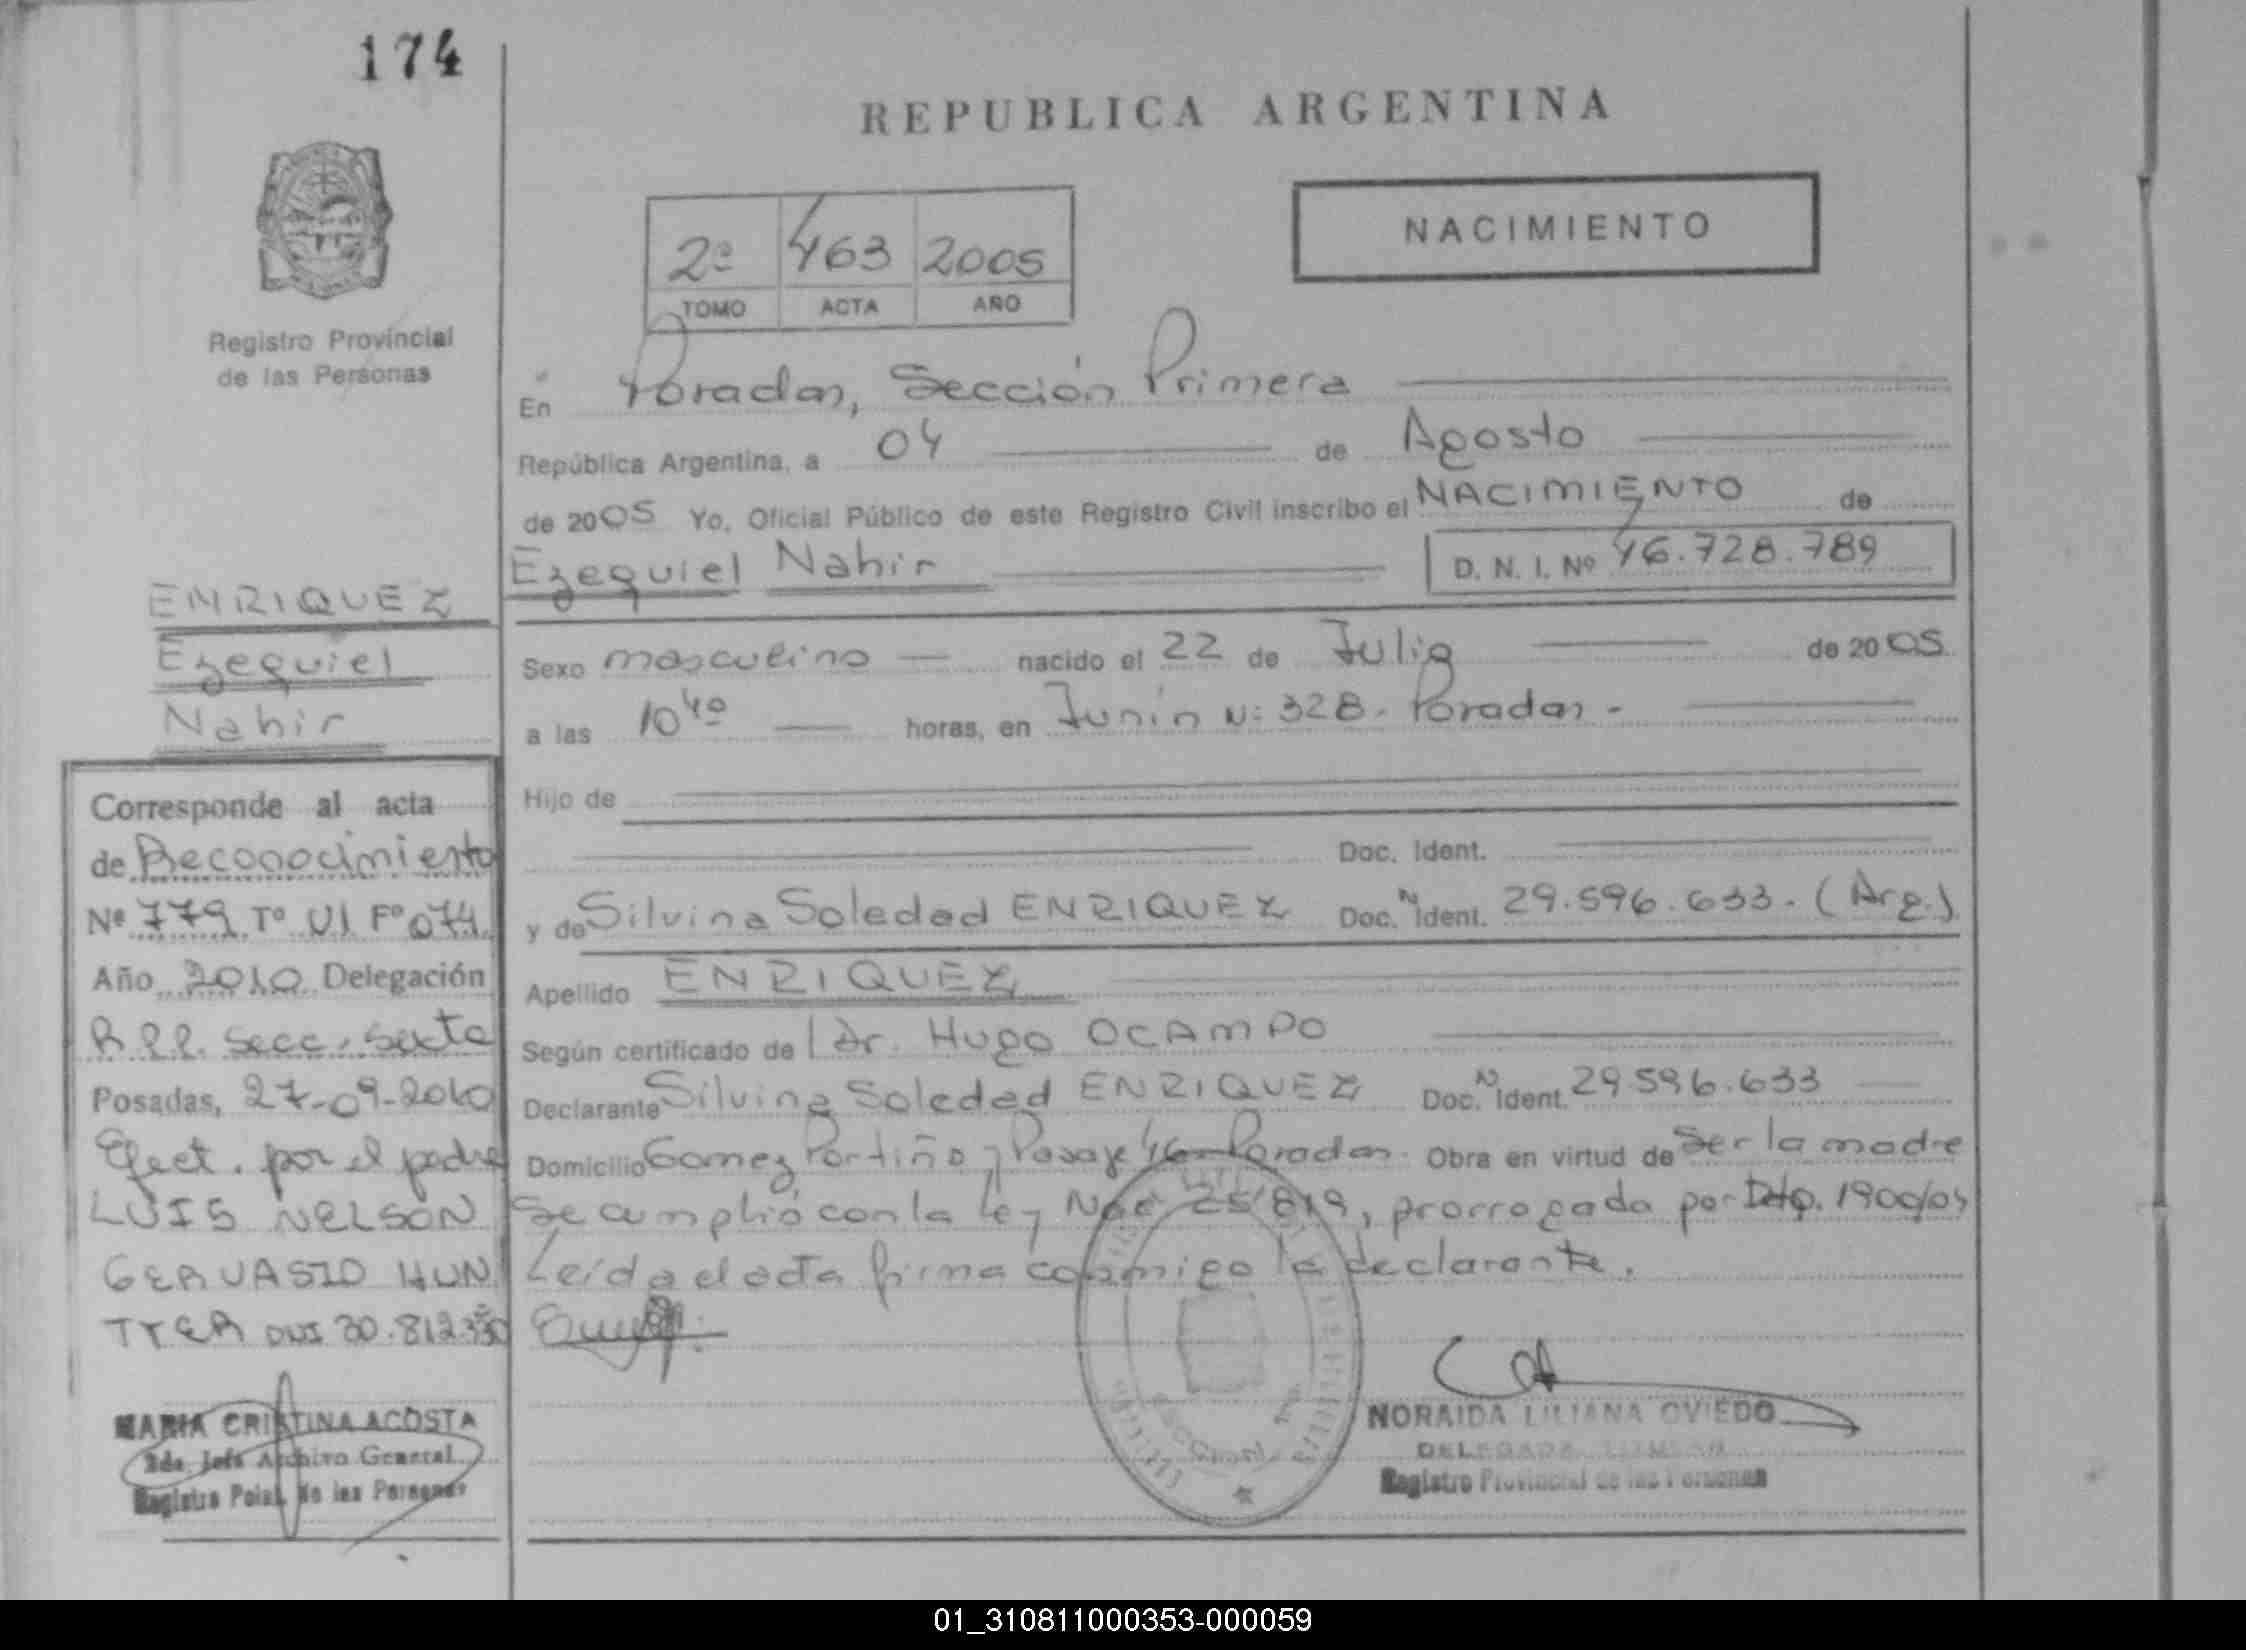 174
REPUBLICA ARGENTINA
NACIMIENTO
2º 463 2005
TOMO ACTA AÑO
Registro Provincial
de las Personas
En Posadas, Sección Primera
República Argentina, a 04 de Agosto
de 2005 Yo, Oficial Público de este Registro Civil inscribo el NACIMIENTO de
Ezequiel Nahir D. N. I. Nº 46.728.789
Sexo masculino nacido el 22 de Julio de 2005
a las 10 40 horas, en Junín Nº 328. Posadas -
Hijo de
Doc. Ident.
y de Silvina Soledad ENRIQUEZ Doc. N Ident. 29.596.633. (Arg.)
Apellido ENRIQUEZ
Según certificado de l Dr. Hugo OCAMPO
Declarante Silvina Soledad ENRIQUEZ Doc. N Ident. 29.596.633
Domicilio Gomez Portiño y Pasaje 46 - Posadas. Obra en virtud de Ser la madre
Se cumplió con la Ley Nac 25819, prorrogada por Dto. 1900/04
Leída el acta firma conmigo la declarante.
NORAIDA LILIANA OVIEDO
DELEGADA TITULAR
Registro Provincial de las Personas
ENRIQUEZ
Ezequiel
Nahir
Corresponde al acta
de Reconocimiento
Nº 779 Tº VI Fº 074
Año 2010 Delegación
R.P.P. Secc. Sexta
Posadas, 27-09-2010
Efect. por el padre
LUIS NELSON
GERVASIO HUN
TTER DNI 30.812.
MARIA CRISTINA ACOSTA
2da. Jefa Archivo General
Registro Pcial. de las Personas
01_310811000353-000059